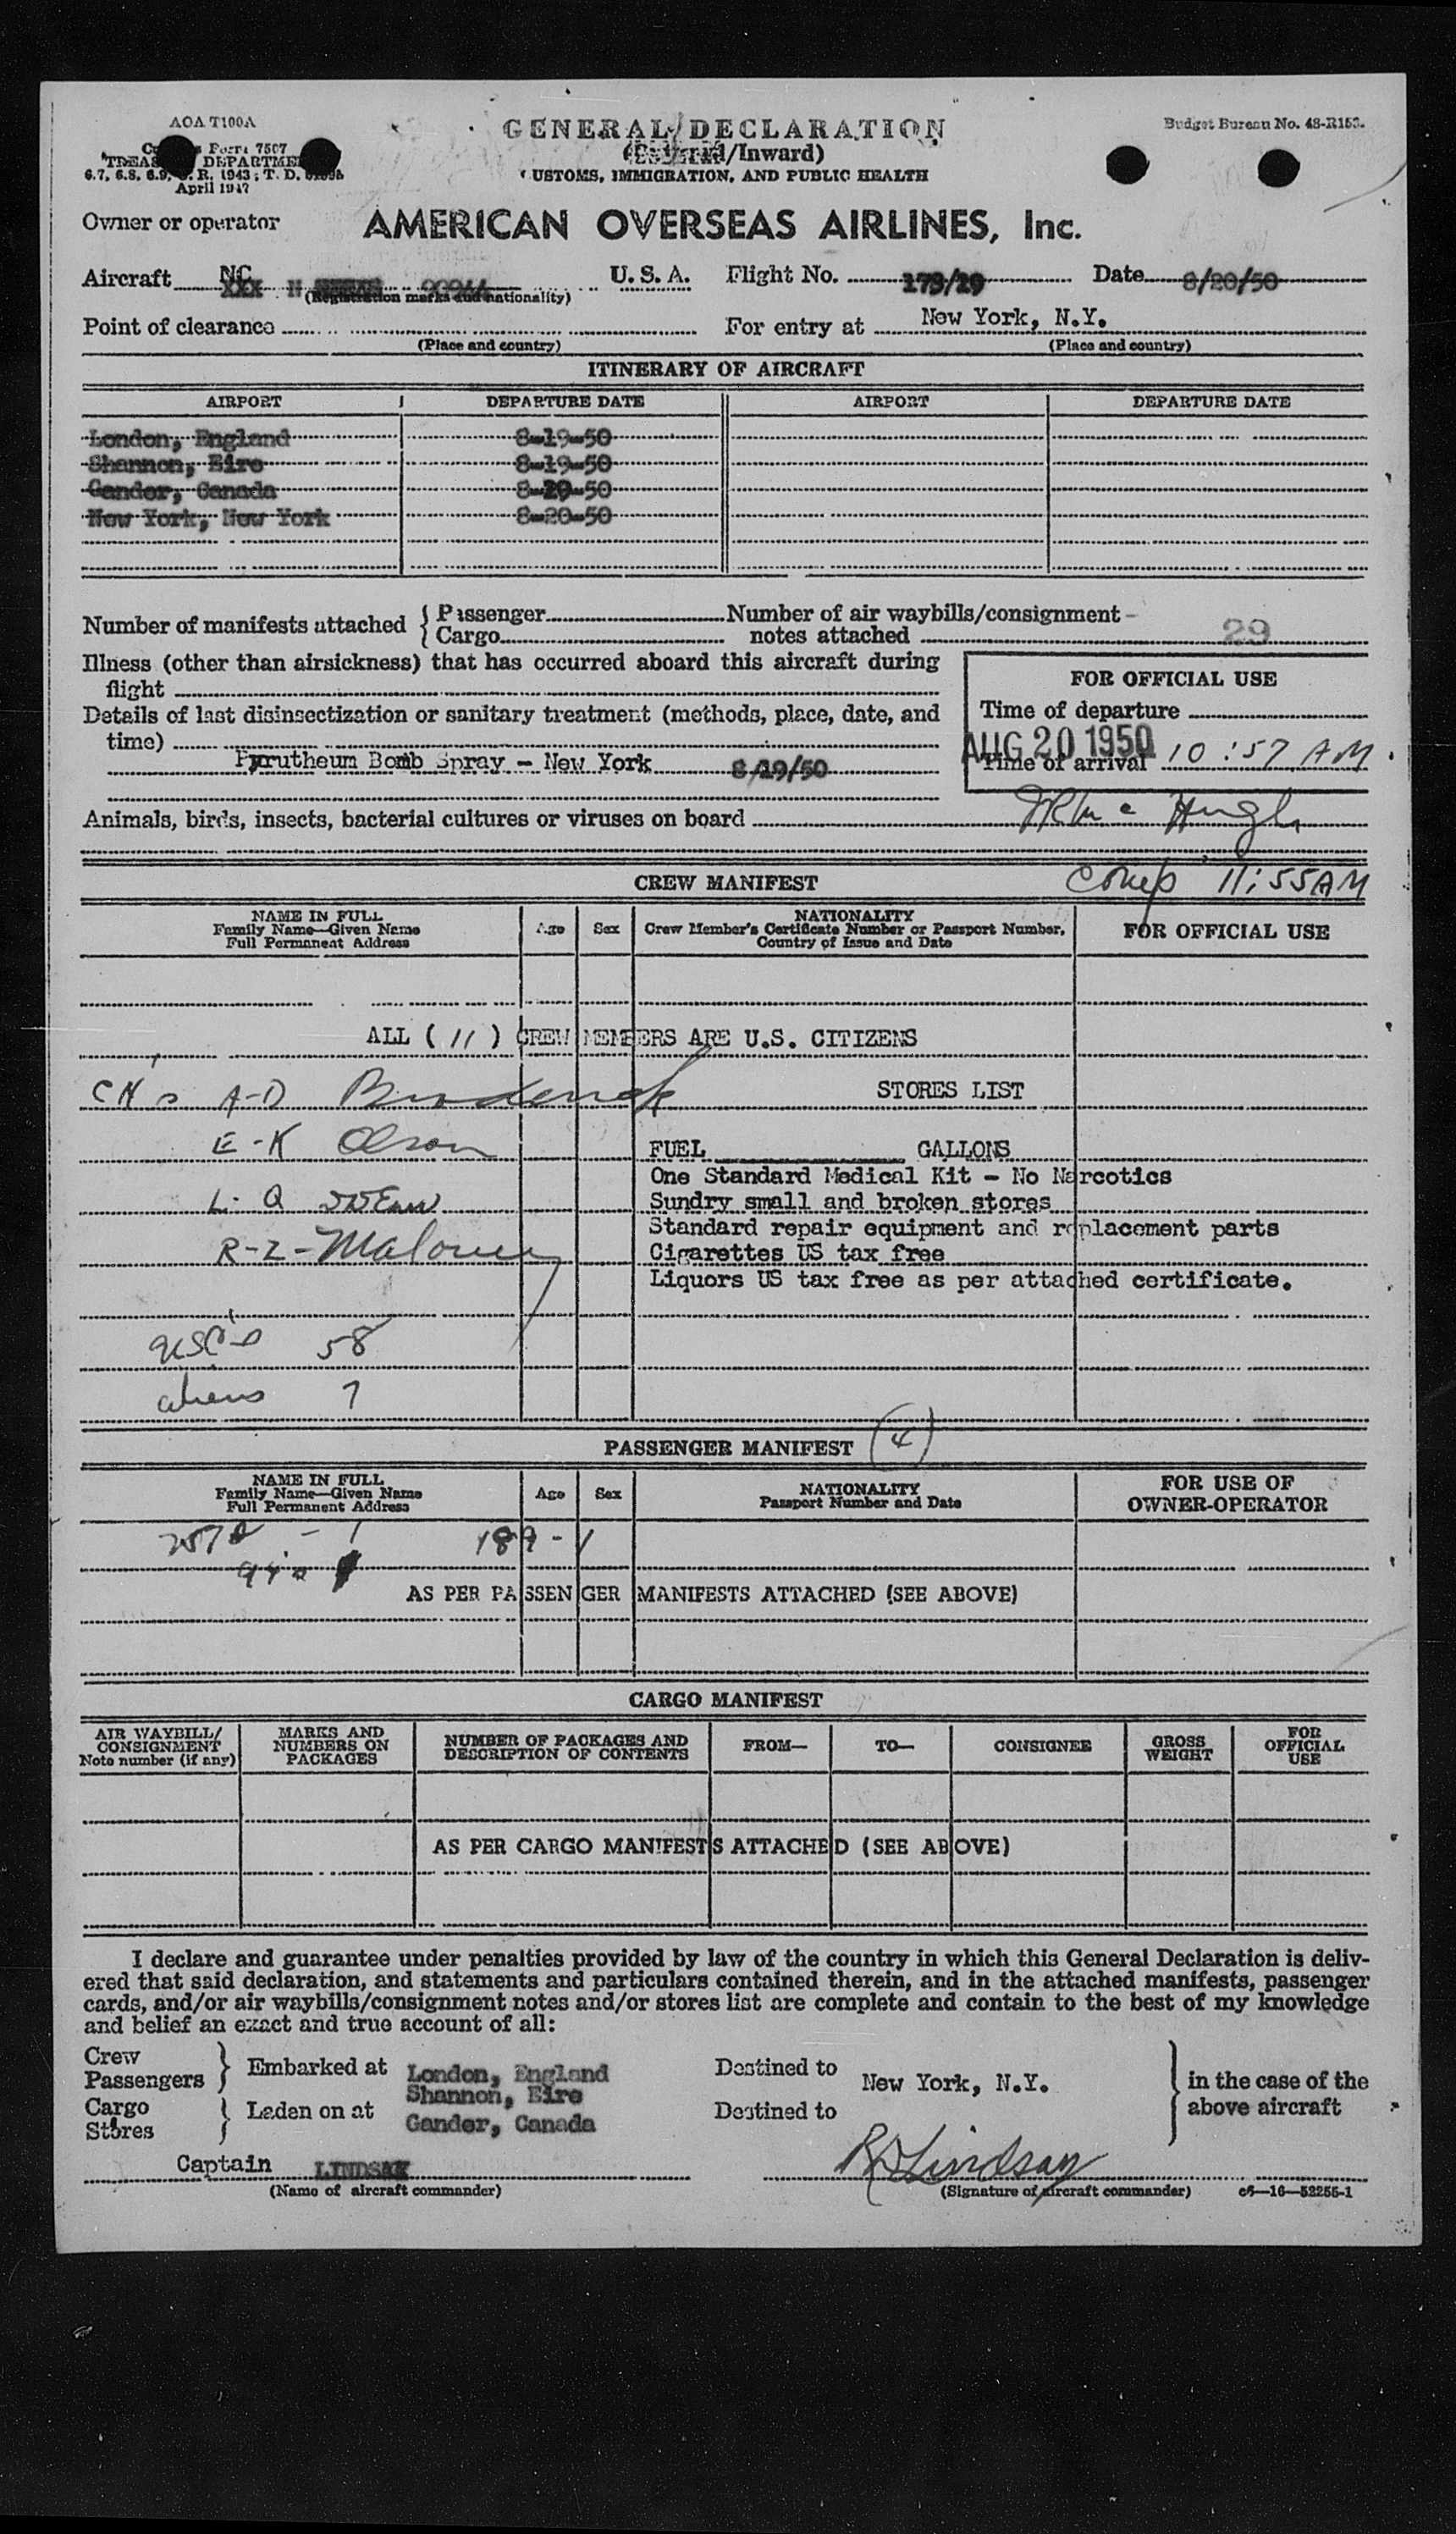 AOA T100A
GENERAL DECLARATION
Budget Bureau No. 48-R153.
Form 7507
(/Inward)
TREASURY DEPARTMENT
6.7, 6.8, 6.9, C. R. 1943; T. D.
CUSTOMS, IMMIGRATION, AND PUBLIC HEALTH
April 1947
Owner or operator AMERICAN OVERSEAS AIRLINES, Inc.
Aircraft NC XXX N U. S. A. Flight No. 179/19 Date 8/20/50
(Registration marks and nationality)
Point of clearance For entry at New York, N.Y.
(Place and country) (Place and country)
ITINERARY OF AIRCRAFT
AIRPORT DEPARTURE DATE AIRPORT DEPARTURE DATE
London, England 8-19-50
Shannon, Eire 8-19-50
Gander, Canada 8-20-50
New York, New York 8-20-50
Number of manifests attached { Passenger Number of air waybills/consignment
Cargo notes attached 29
Illness (other than airsickness) that has occurred aboard this aircraft during
flight
FOR OFFICIAL USE
Details of last disinsectization or sanitary treatment (methods, place, date, and
time)
Time of departure
AUG 20 1950
Pyrutheum Bomb Spray - New York 8/19/50
Time of arrival 10:57 AM
Animals, birds, insects, bacterial cultures or viruses on board
CREW MANIFEST
Comp 11:55AM
NAME IN FULL
Family Name—Given Name
Full Permanent Address
Age Sex
NATIONALITY
Crew Member's Certificate Number or Passport Number,
Country of Issue and Date
FOR OFFICIAL USE
ALL ( 11 ) CREW MEMBERS ARE U.S. CITIZENS
A-D Broderick STORES LIST
E-K Olson FUEL GALLONS
One Standard Medical Kit - No Narcotics
L-Q Sundry small and broken stores
Standard repair equipment and replacement parts
R-Z- Maloney Cigarettes US tax free
Liquors US tax free as per attached certificate.
USC's 58
aliens 7
PASSENGER MANIFEST (4)
NAME IN FULL
Family Name—Given Name
Full Permanent Address
Age Sex
NATIONALITY
Passport Number and Date
FOR USE OF
OWNER-OPERATOR
189-1
AS PER PASSENGER MANIFESTS ATTACHED (SEE ABOVE)
CARGO MANIFEST
AIR WAYBILL/
CONSIGNMENT
Note number (if any)
MARKS AND
NUMBERS ON
PACKAGES
NUMBER OF PACKAGES AND
DESCRIPTION OF CONTENTS
FROM— TO— CONSIGNEE
GROSS
WEIGHT
FOR
OFFICIAL
USE
AS PER CARGO MANIFESTS ATTACHED (SEE ABOVE)
I declare and guarantee under penalties provided by law of the country in which this General Declaration is deliv-
ered that said declaration, and statements and particulars contained therein, and in the attached manifests, passenger
cards, and/or air waybills/consignment notes and/or stores list are complete and contain to the best of my knowledge
and belief an exact and true account of all:
Crew
Passengers } Embarked at London, England Destined to New York, N.Y. } in the case of the
Shannon, Eire
Cargo
Stores } Laden on at Gander, Canada Destined to above aircraft
Captain LINDSAY R Lindsay
(Name of aircraft commander) (Signature of aircraft commander) c5—16—52255-1